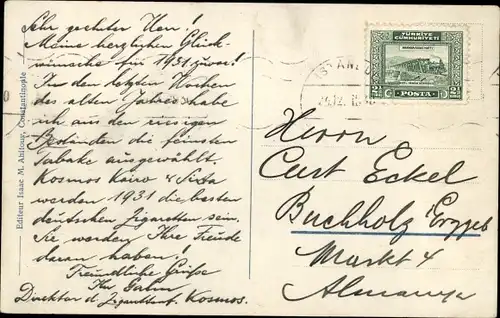 Sehr geehrter Herr!
Meine herzlichen Glück-
wünsche für 1931 zuvor!
In den letzten Wochen
des alten Jahres habe
ich aus den riesigen
Beständen die feinsten
Tabake ausgewählt.
Kosmos Kairo & Sixta
werden 1931 die besten
deutschen Zigaretten sein.
Sie werden Ihre Freude
daran haben!
Freundliche Grüße
Ihr
Direktor d. Zigarettenf. Kosmos.
Editeur Isaac M. Ahitouv, Constantinople
TÜRKİYE
CÜMHURİYETİ
2½ 2½
POSTA
ISTANBUL
Herrn
Curt Eckel
Buchholz Erzgeb
Markt 4
Almanya